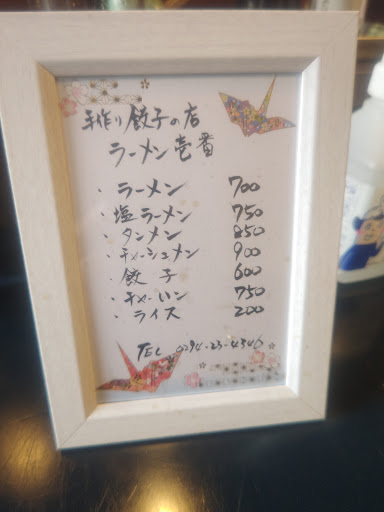 手作り餃子の店
ラーメン壱番
・ラーメン 700
・塩ラーメン 750
・タンメン 850
・チャーシュメン 900
・餃子 600
・チャーハン 750
・ライス 200
TEL 0294-23-4346